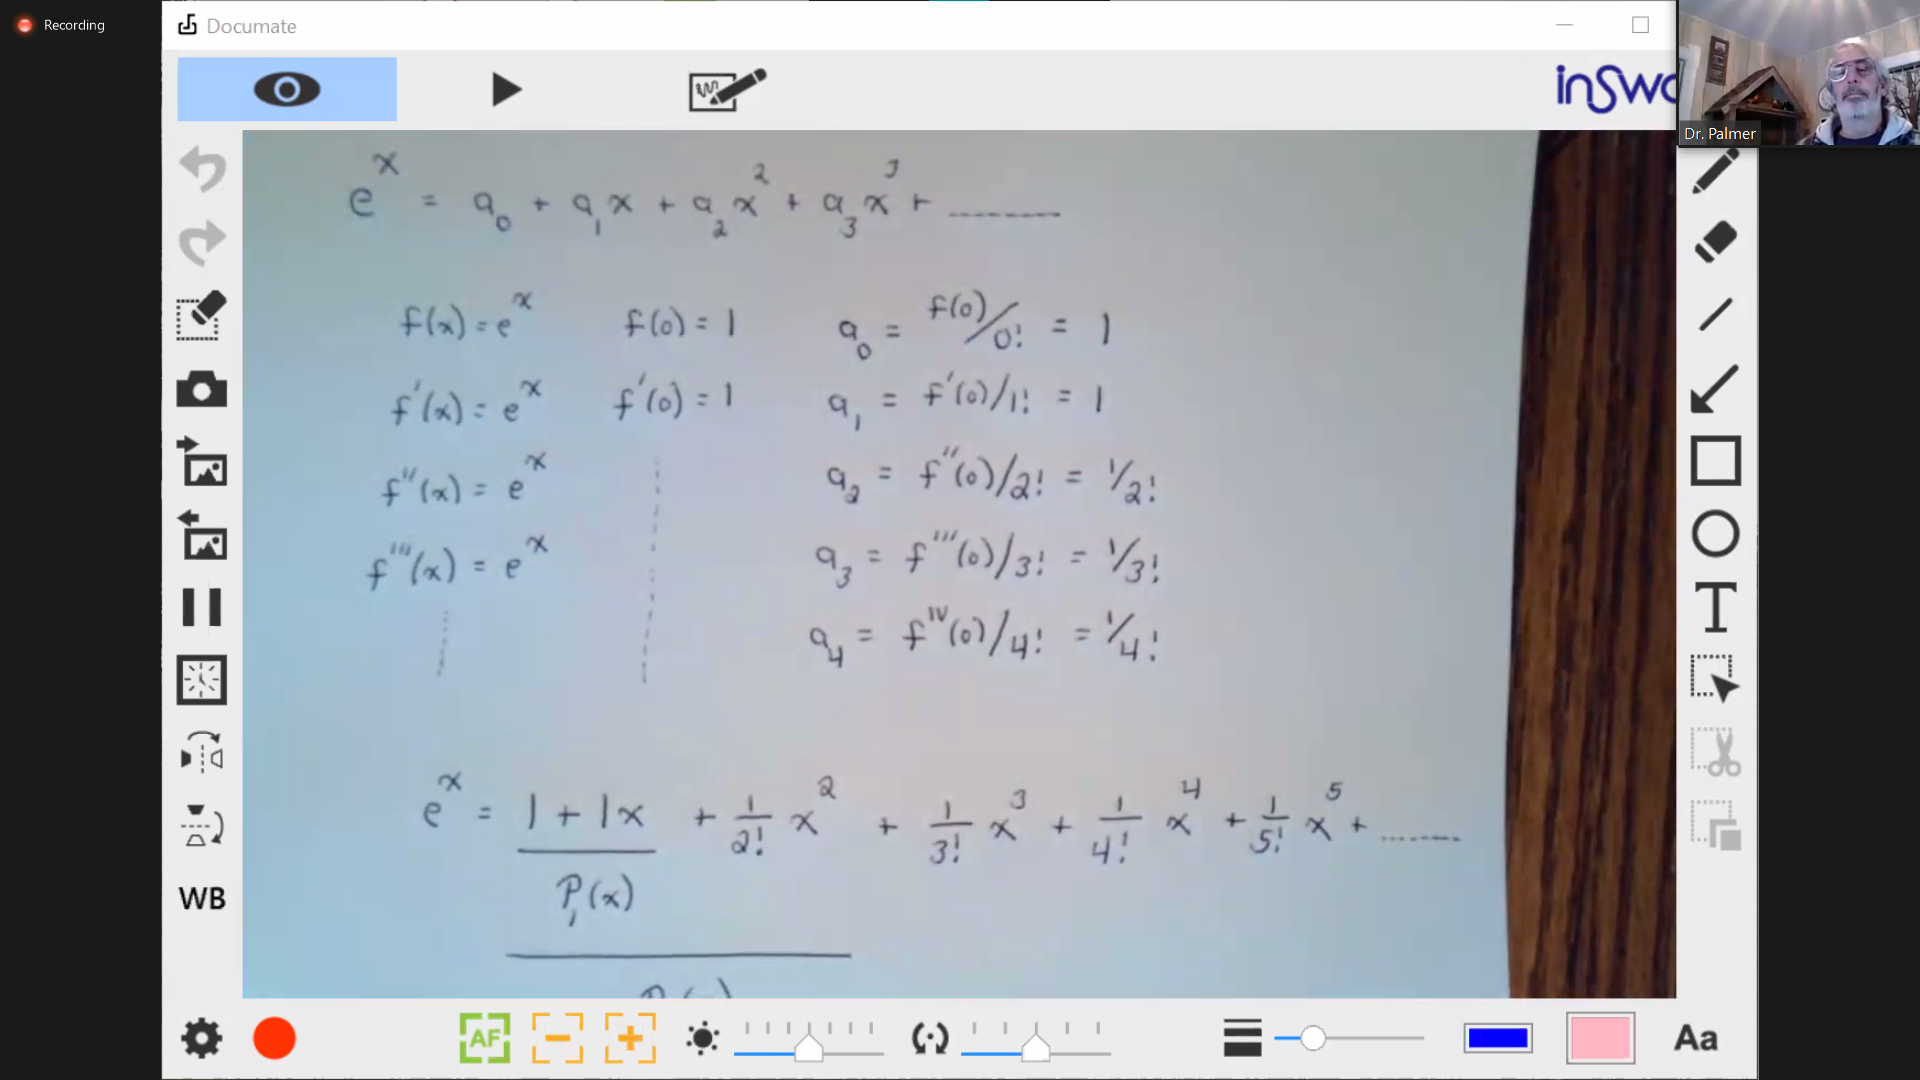 Recording
Documate
inSwo
Dr. Palmer
e^x = a_0 + a_1 x + a_2 x^2 + a_3 x^3 + ........
f(x) = e^x f(0) = 1 a_0 = f(0)/0! = 1
f'(x) = e^x f'(0) = 1 a_1 = f'(0)/1! = 1
f''(x) = e^x a_2 = f''(0)/2! = 1/2!
f'''(x) = e^x a_3 = f'''(0)/3! = 1/3!
a_4 = f^IV(0)/4! = 1/4!
e^x = 1 + 1x + 1/2! x^2 + 1/3! x^3 + 1/4! x^4 + 1/5! x^5 + ........
P_1(x)
WB
AF
T
Aa